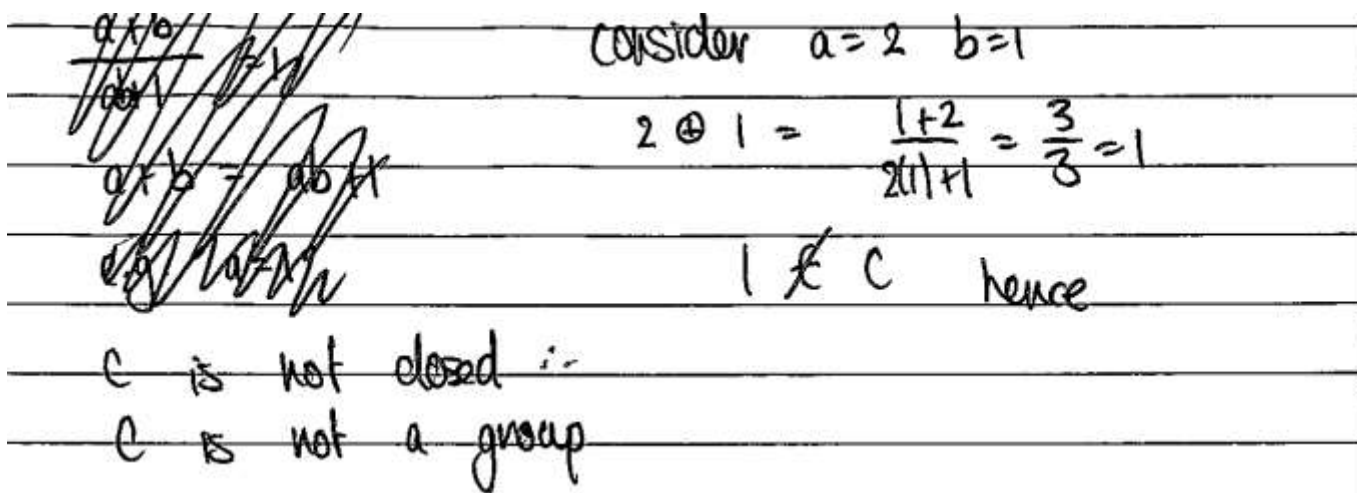 consider a = 2 b = 1
2 ⊕ 1 = \frac{1+2}{2(1)+1} = \frac{3}{3} = 1
1 ∉ C hence
C is not closed ∴
C is not a group